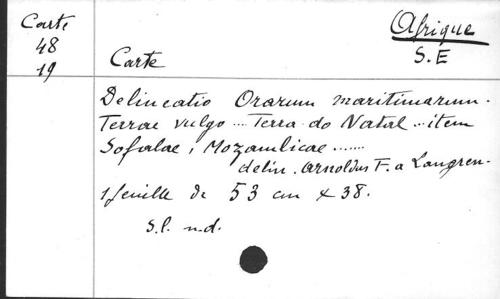 Carte
48
19
Afrique
S.E
Carte
Delineatio Orarum maritimarum.
Terrae vulgo .... Terra do Natal ... item
Sofalae, Mozambicae .......
delin. Arnoldus F. a Langren.
1 feuille de 53 cm x 38.
s.l. n.d.